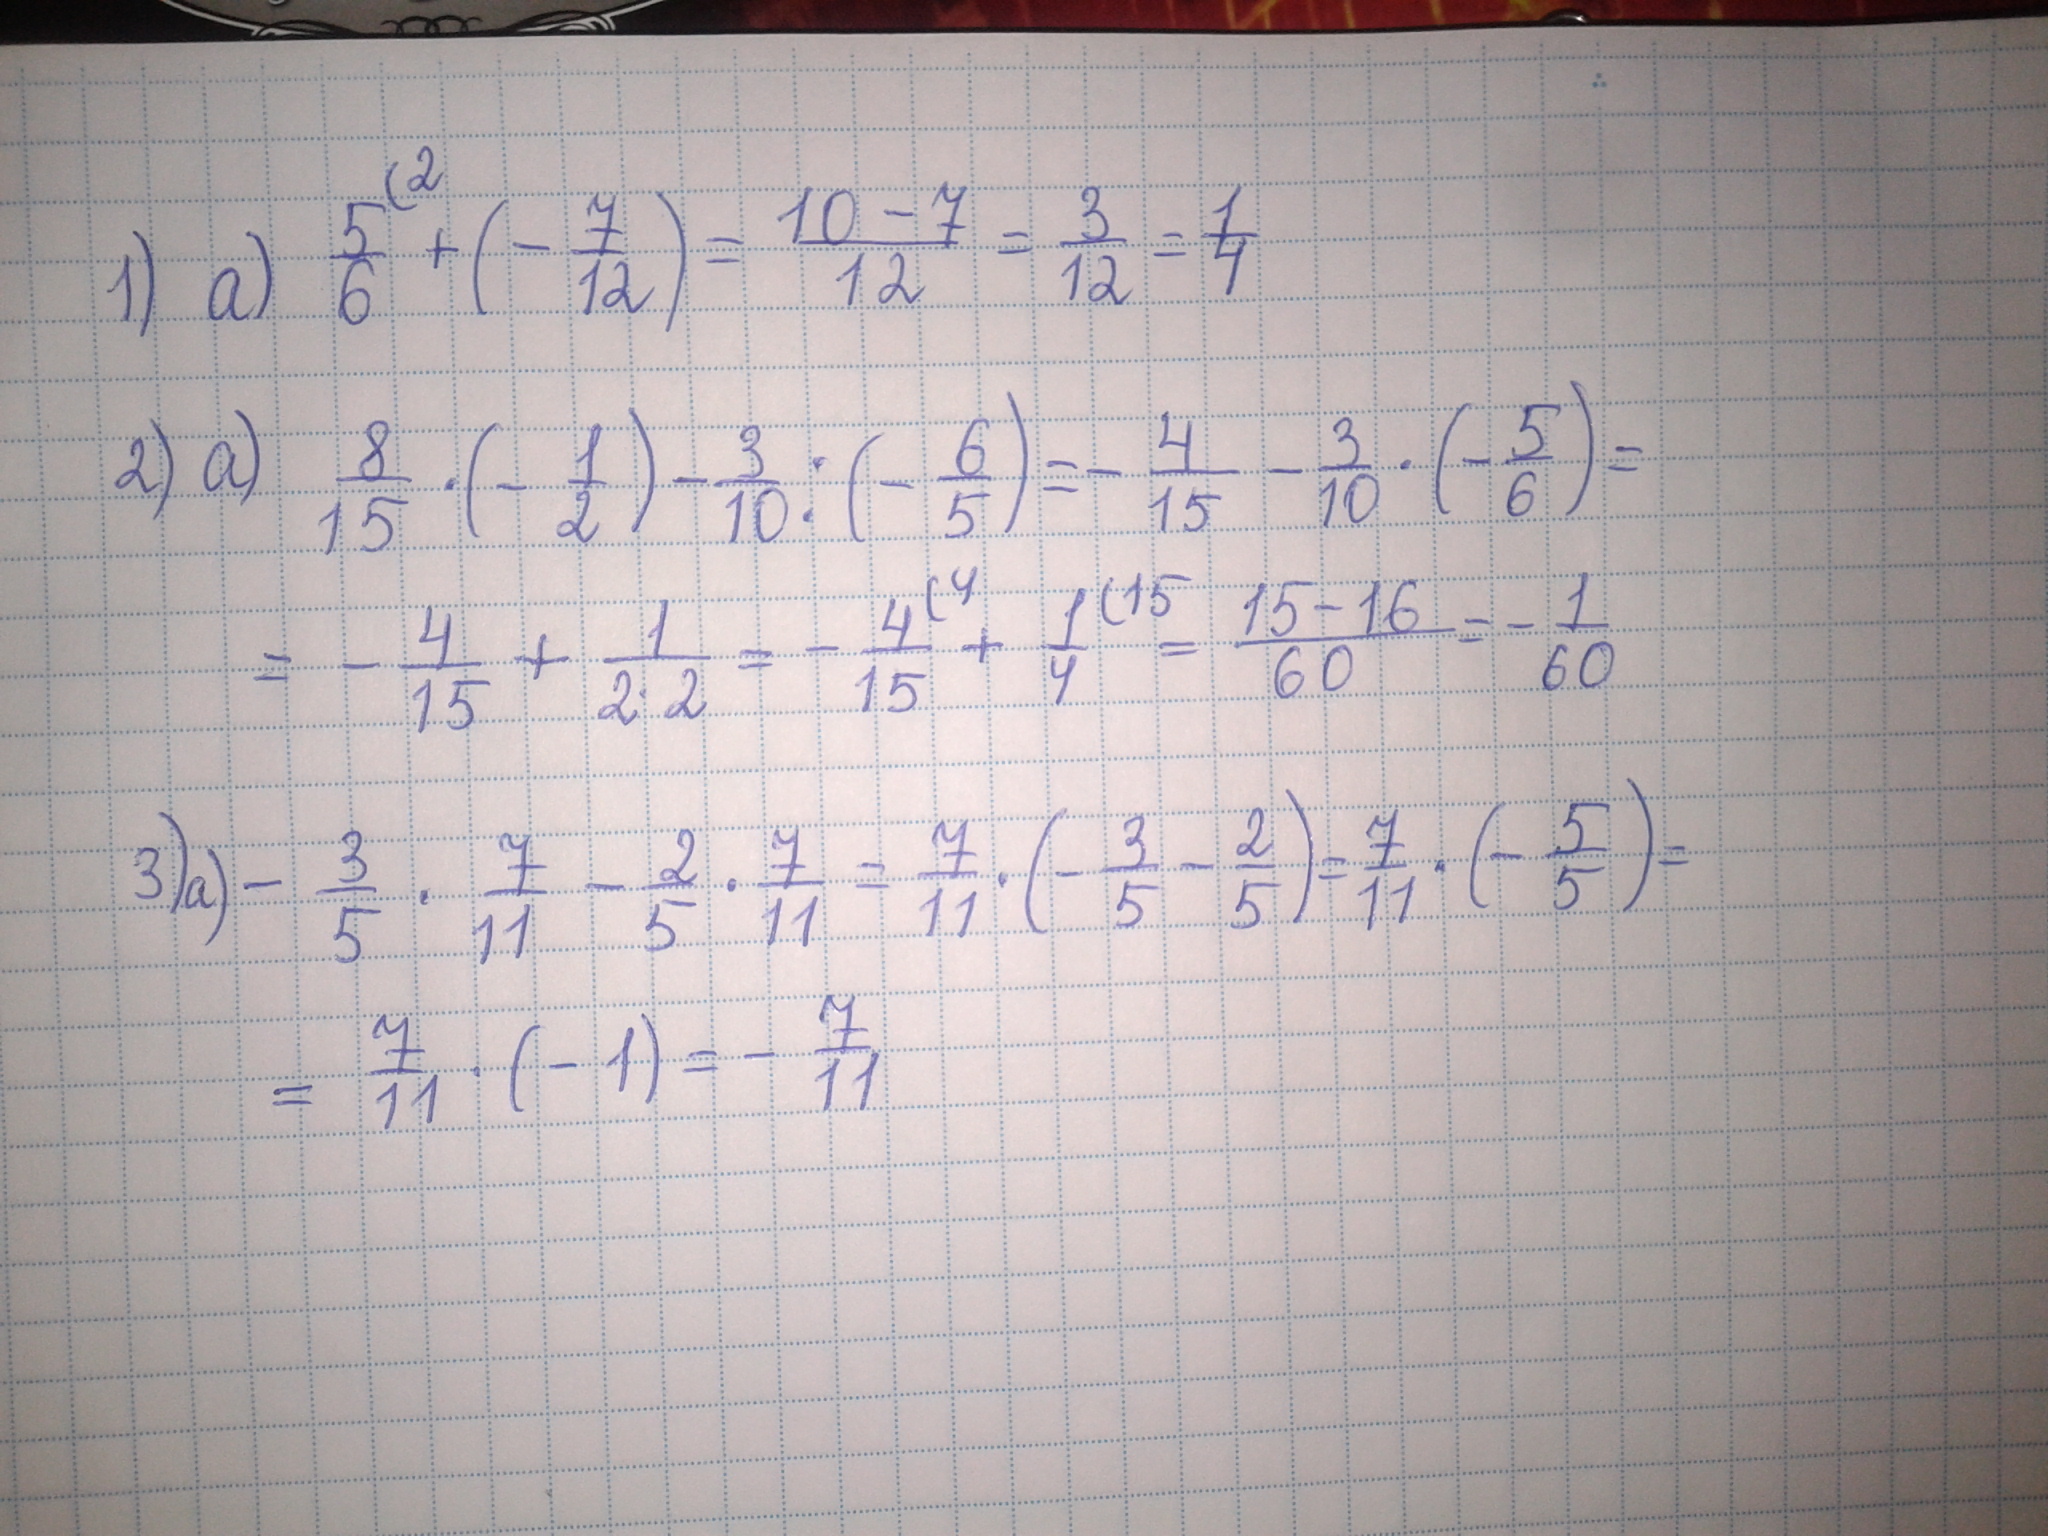 1) а) 5/6 (2 + (- 7/12) = 10-7/12 = 3/12 = 1/4
2) а) 8/15 · (- 1/2) - 3/10 : (- 6/5) = - 4/15 - 3/10 · (- 5/6) =
= - 4/15 + 1/2·2 = - 4/15 (4 + 1/4 (15 = 15-16/60 = - 1/60
3) а) - 3/5 · 7/11 - 2/5 · 7/11 = 7/11 · (- 3/5 - 2/5) = 7/11 · (- 5/5) =
= 7/11 · (- 1) = - 7/11